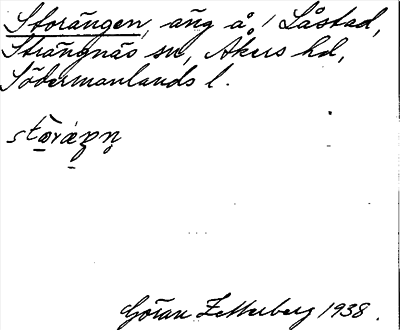 Storängen, äng å 1 Låstad,
Strängnäs sn, Åkers hd,
Södermanlands l.
Göran Zetterberg 1938.